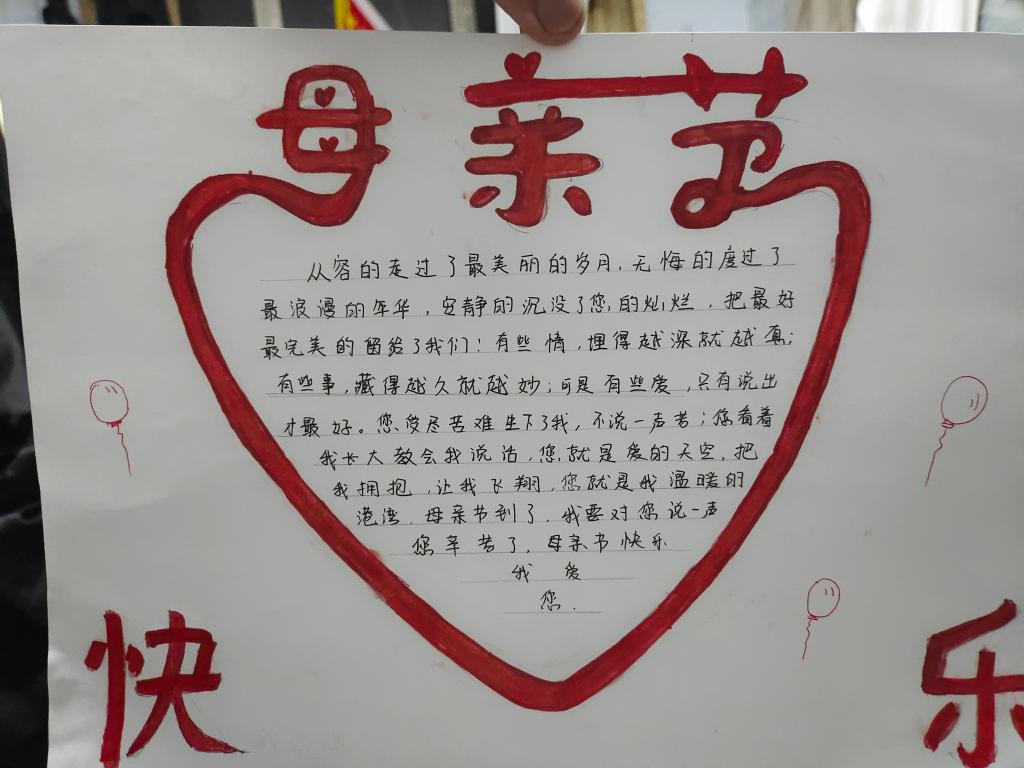 母亲节
从容的走过了最美丽的岁月,无悔的度过了
最浪漫的年华,安静的沉没了您的灿烂,把最好
最完美的留给了我们!有些情,埋得越深就越真;
有些事,藏得越久就越妙;可是有些爱,只有说出
才最好。您受尽苦难生下了我,不说一声苦;您看着
我长大教会我说话,您就是爱的天空,把
我拥抱,让我飞翔,您就是我温暖的
港湾,母亲节到了,我要对您说一声
您辛苦了,母亲节快乐
我爱
您.
快乐